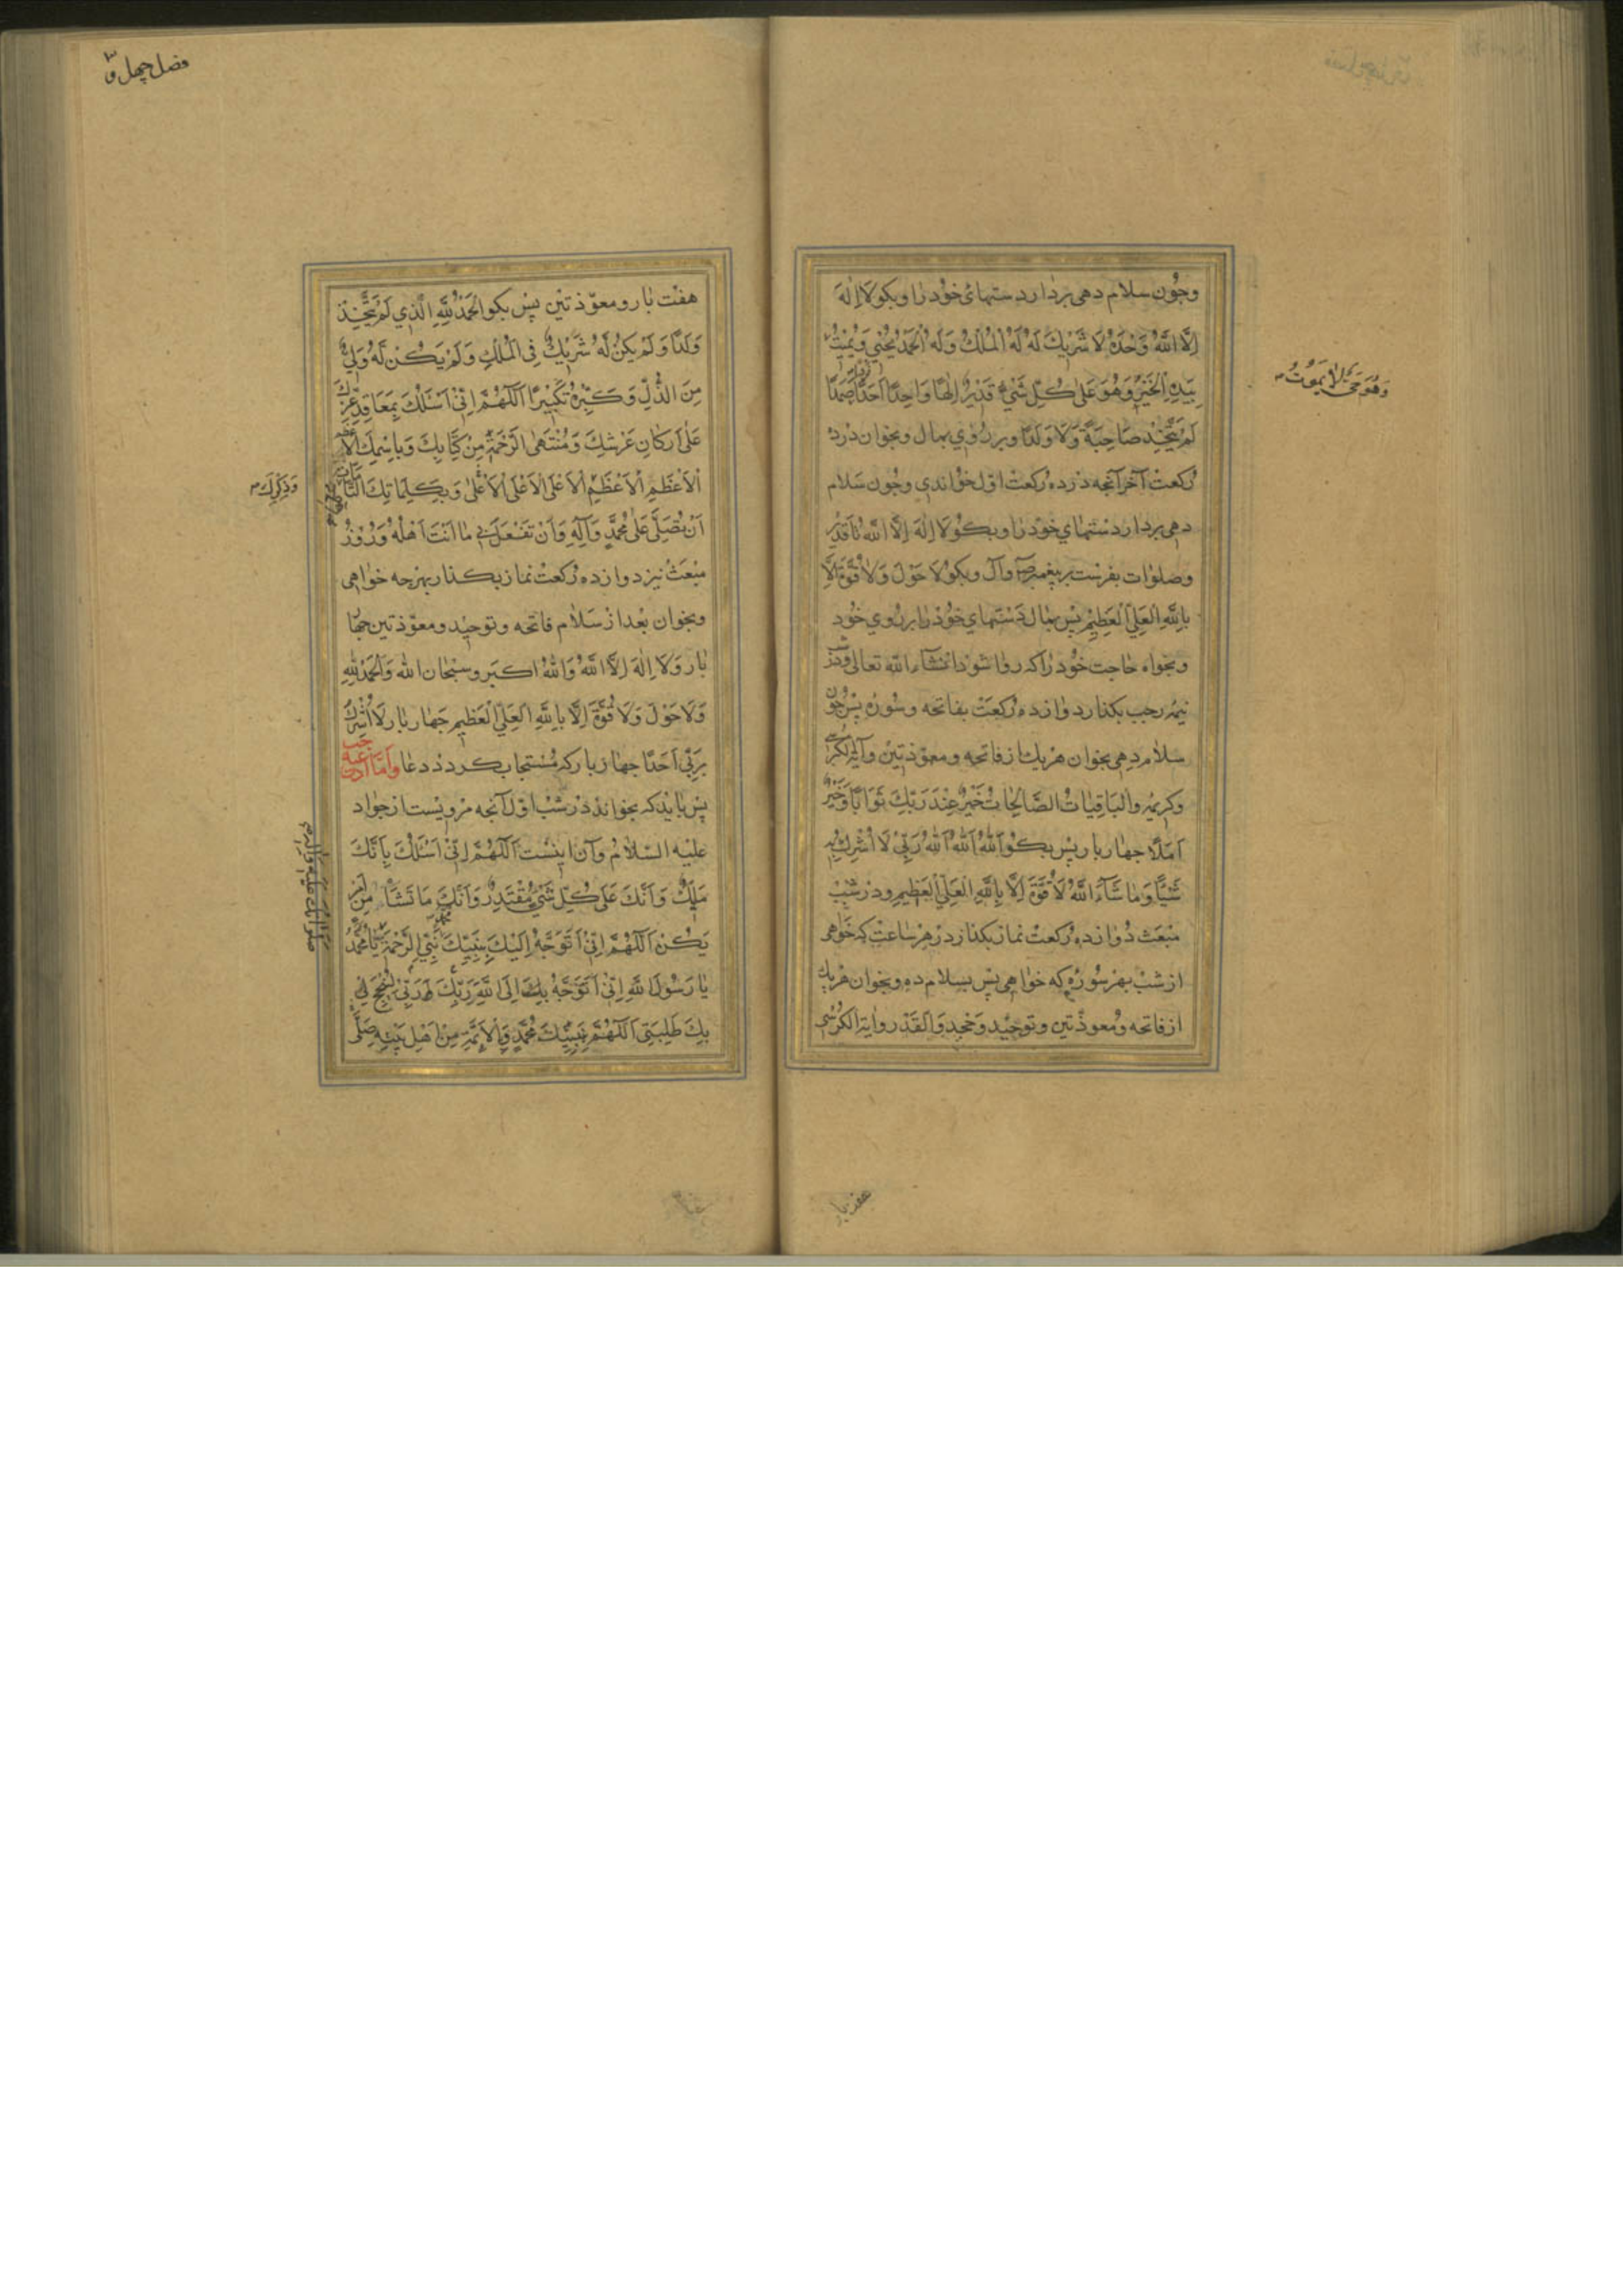 وجون سلام دهی بردار دستهای خود را و بکو لَا اِلٰهَ
اِلَّا اللّٰهُ وَحْدَهُ لَا شَرِيكَ لَهُ لَهُ الْمُلْكُ وَلَهُ الْحَمْدُ يُحْيِي وَيُمِيتُ
وَهُوَ حَيٌّ لَا يَمُوتُ
بِيَدِهِ الْخَيْرُ وَهُوَ عَلٰى كُلِّ شَيْءٍ قَدِيرٌ اِلٰهًا وَاحِدًا اَحَدًا صَمَدًا
لَمْ يَتَّخِذْ صَاحِبَةً وَلَا وَلَدًا و بر روی بمال و بخوان در ده
رکعت آخر آنجه در ده رکعت اول خواندی وجون سلام
دهی بردار دستهای خود را و بکو لَا اِلٰهَ اِلَّا اللّٰهُ تا قدیر
وصلوات بفرست بر پیغمبر و آل و بکو لَا حَوْلَ وَلَا قُوَّةَ اِلَّا
بِاللّٰهِ الْعَلِيِّ الْعَظِيمِ پس بمال دستهای خود را بر روی خود
و بخواه حاجت خود را که روا شود انشاء الله تعالی و در
نیمه رجب بکذار دوازده رکعت بفاتحه وسوره پس جون
سلام دهی بخوان هر یک از فاتحه و معوذتین وآیة الکرسی
وکریمه وَالْبَاقِيَاتُ الصَّالِحَاتُ خَيْرٌ عِنْدَ رَبِّكَ ثَوَابًا وَخَيْرٌ
اَمَلًا جهار بار پس بکو اَللّٰهُ اَللّٰهُ اَللّٰهُ رَبِّي لَا اُشْرِكُ بِهِ
شَيْئًا وَمَا شَاءَ اللّٰهُ لَا قُوَّةَ اِلَّا بِاللّٰهِ الْعَلِيِّ الْعَظِيمِ و در شب
مبعث دوازده رکعت نماز بکذار در هر ساعت که خواهی
از شب بهر سوره که خواهی پس سلام ده و بخوان هر یک
از فاتحه و معوذتین و توحید و جحد والقدر وآیة الکرسی
هفت بار
فصل چهل و
هفت بار و معوذتین پس بکو اَلْحَمْدُ لِلّٰهِ الَّذِي لَمْ يَتَّخِذْ
وَلَدًا وَلَمْ يَكُنْ لَهُ شَرِيكٌ فِي الْمُلْكِ وَلَمْ يَكُنْ لَهُ وَلِيٌّ
مِنَ الذُّلِّ وَكَبِّرْهُ تَكْبِيرًا اَللّٰهُمَّ اِنِّي اَسْئَلُكَ بِمَعَاقِدِ عِزِّكَ
عَلٰى اَرْكَانِ عَرْشِكَ وَمُنْتَهَى الرَّحْمَةِ مِنْ كِتَابِكَ وَبِاسْمِكَ الْاَعْظَمِ
وَذِكْرِكَ
الْاَعْظَمِ الْاَعْظَمِ الْاَعْلَى الْاَعْلَى الْاَعْلٰى وَبِكَلِمَاتِكَ التَّامَّاتِ
اَنْ تُصَلِّيَ عَلٰى مُحَمَّدٍ وَآلِهِ وَاَنْ تَفْعَلَ بِي مَا اَنْتَ اَهْلُهُ و روز
مبعث نیز دوازده رکعت نماز بکذار بهرجه خواهی
و بخوان بعد از سلام فاتحه و توحید و معوذتین جهار
بار وَلَا اِلٰهَ اِلَّا اللّٰهُ وَاللّٰهُ اَكْبَر وسُبْحَانَ اللّٰهِ وَالْحَمْدُ لِلّٰهِ
وَلَا حَوْلَ وَلَا قُوَّةَ اِلَّا بِاللّٰهِ الْعَلِيِّ الْعَظِيمِ جهار بار لَا اُشْرِكُ
بِرَبِّي اَحَدًا جهار بار که مستجاب کردد دعا واَمّا ادعیه رجب
پس باید که بخواند در شب اول آنجه مرویست از جواد
علیه السلام وآن اینست اَللّٰهُمَّ اِنِّي اَسْئَلُكَ بِاَنَّكَ
مَلِكٌ وَاَنَّكَ عَلٰى كُلِّ شَيْءٍ مُقْتَدِرٌ وَاَنَّكَ مَا تَشَاءُ مِنْ اَمْرٍ
يَكُنْ اَللّٰهُمَّ اِنِّي اَتَوَجَّهُ اِلَيْكَ بِنَبِيِّكَ مُحَمَّدٍ نَبِيِّ الرَّحْمَةِ يَا مُحَمَّدُ
يَا رَسُولَ اللّٰهِ اِنِّي اَتَوَجَّهُ بِكَ اِلَى اللّٰهِ رَبِّكَ وَرَبِّي لِيُنْجِحَ لِي
بِكَ طَلِبَتِي اَللّٰهُمَّ بِنَبِيِّكَ مُحَمَّدٍ وَالْاَئِمَّةِ مِنْ اَهْلِ بَيْتِهِ صَلَّى